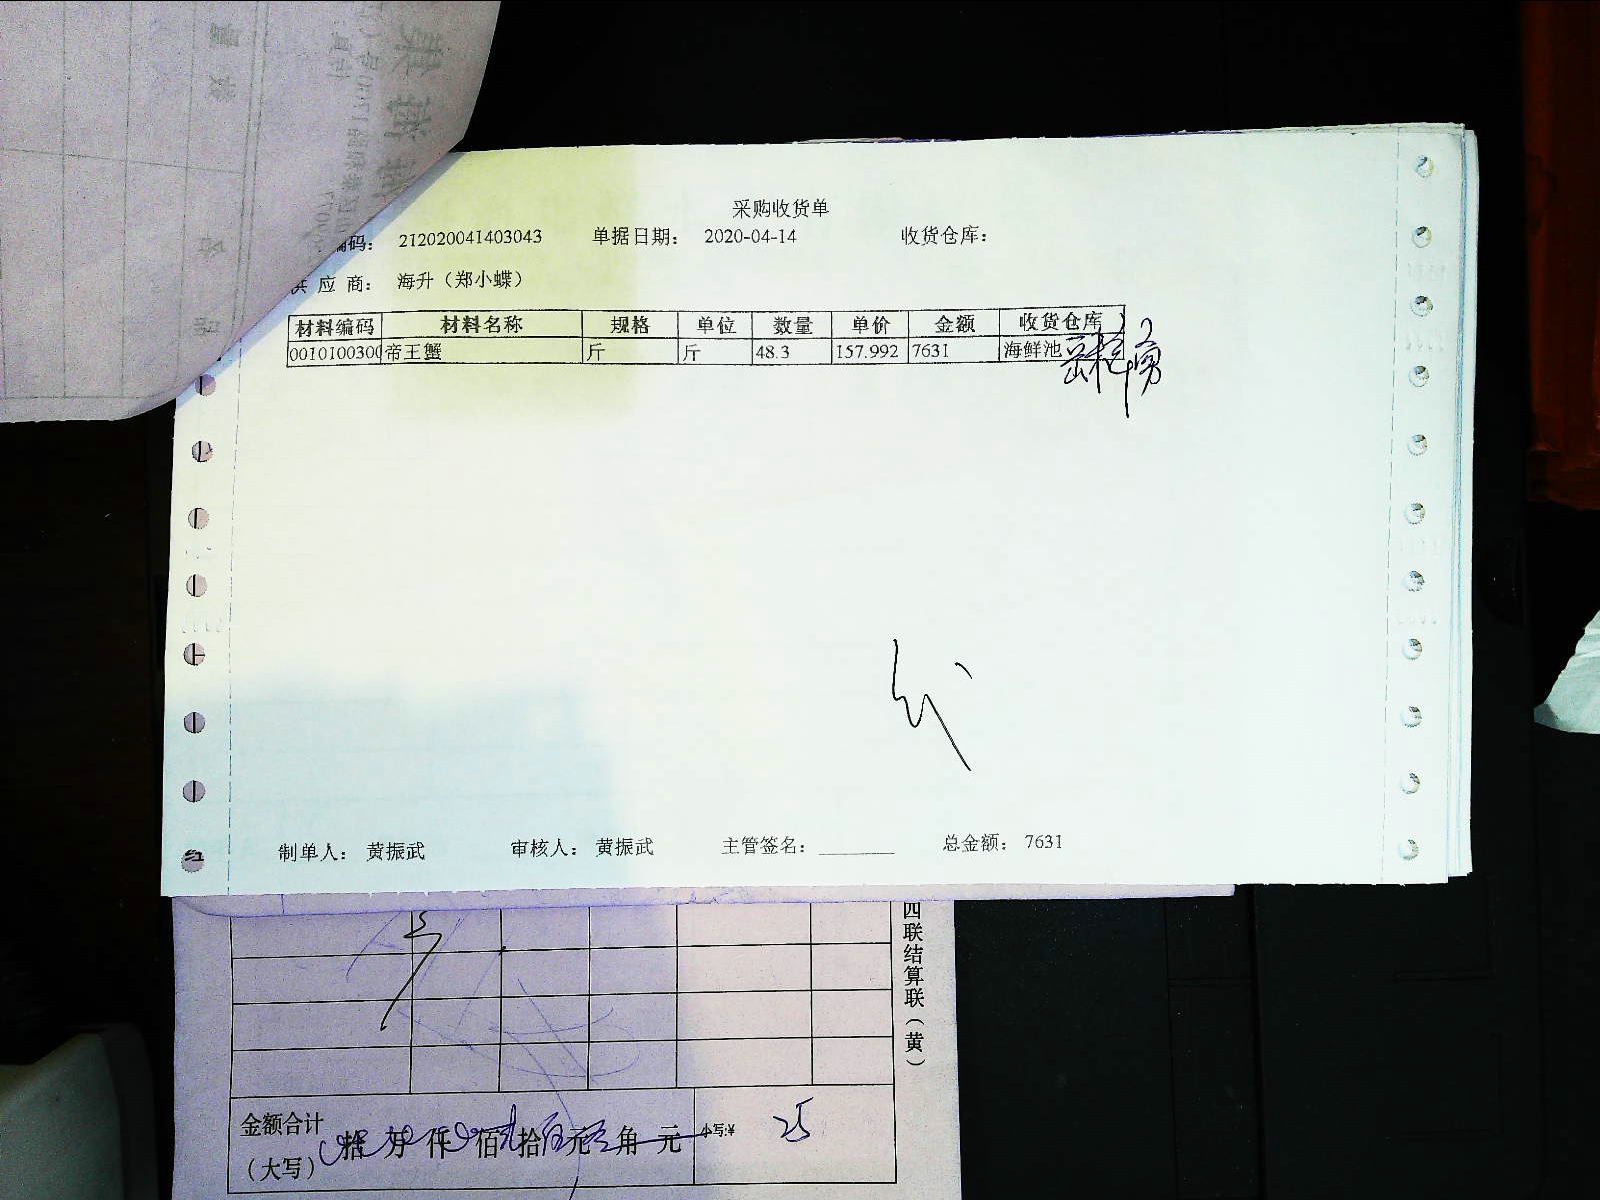 采购收货单
编码: 212020041403043 单据日期: 2020-04-14 收货仓库:
供应商: 海升（郑小蝶）
材料编码 材料名称 规格 单位 数量 单价 金额 收货仓库
0010100300 帝王蟹 斤 斤 48.3 157.992 7631 海鲜池
制单人: 黄振武 审核人: 黄振武 主管签名: ________ 总金额: 7631
四联结算联（黄）
金额合计（大写） 拾 万 仟 佰 拾 元 角 元 小写:¥ 25